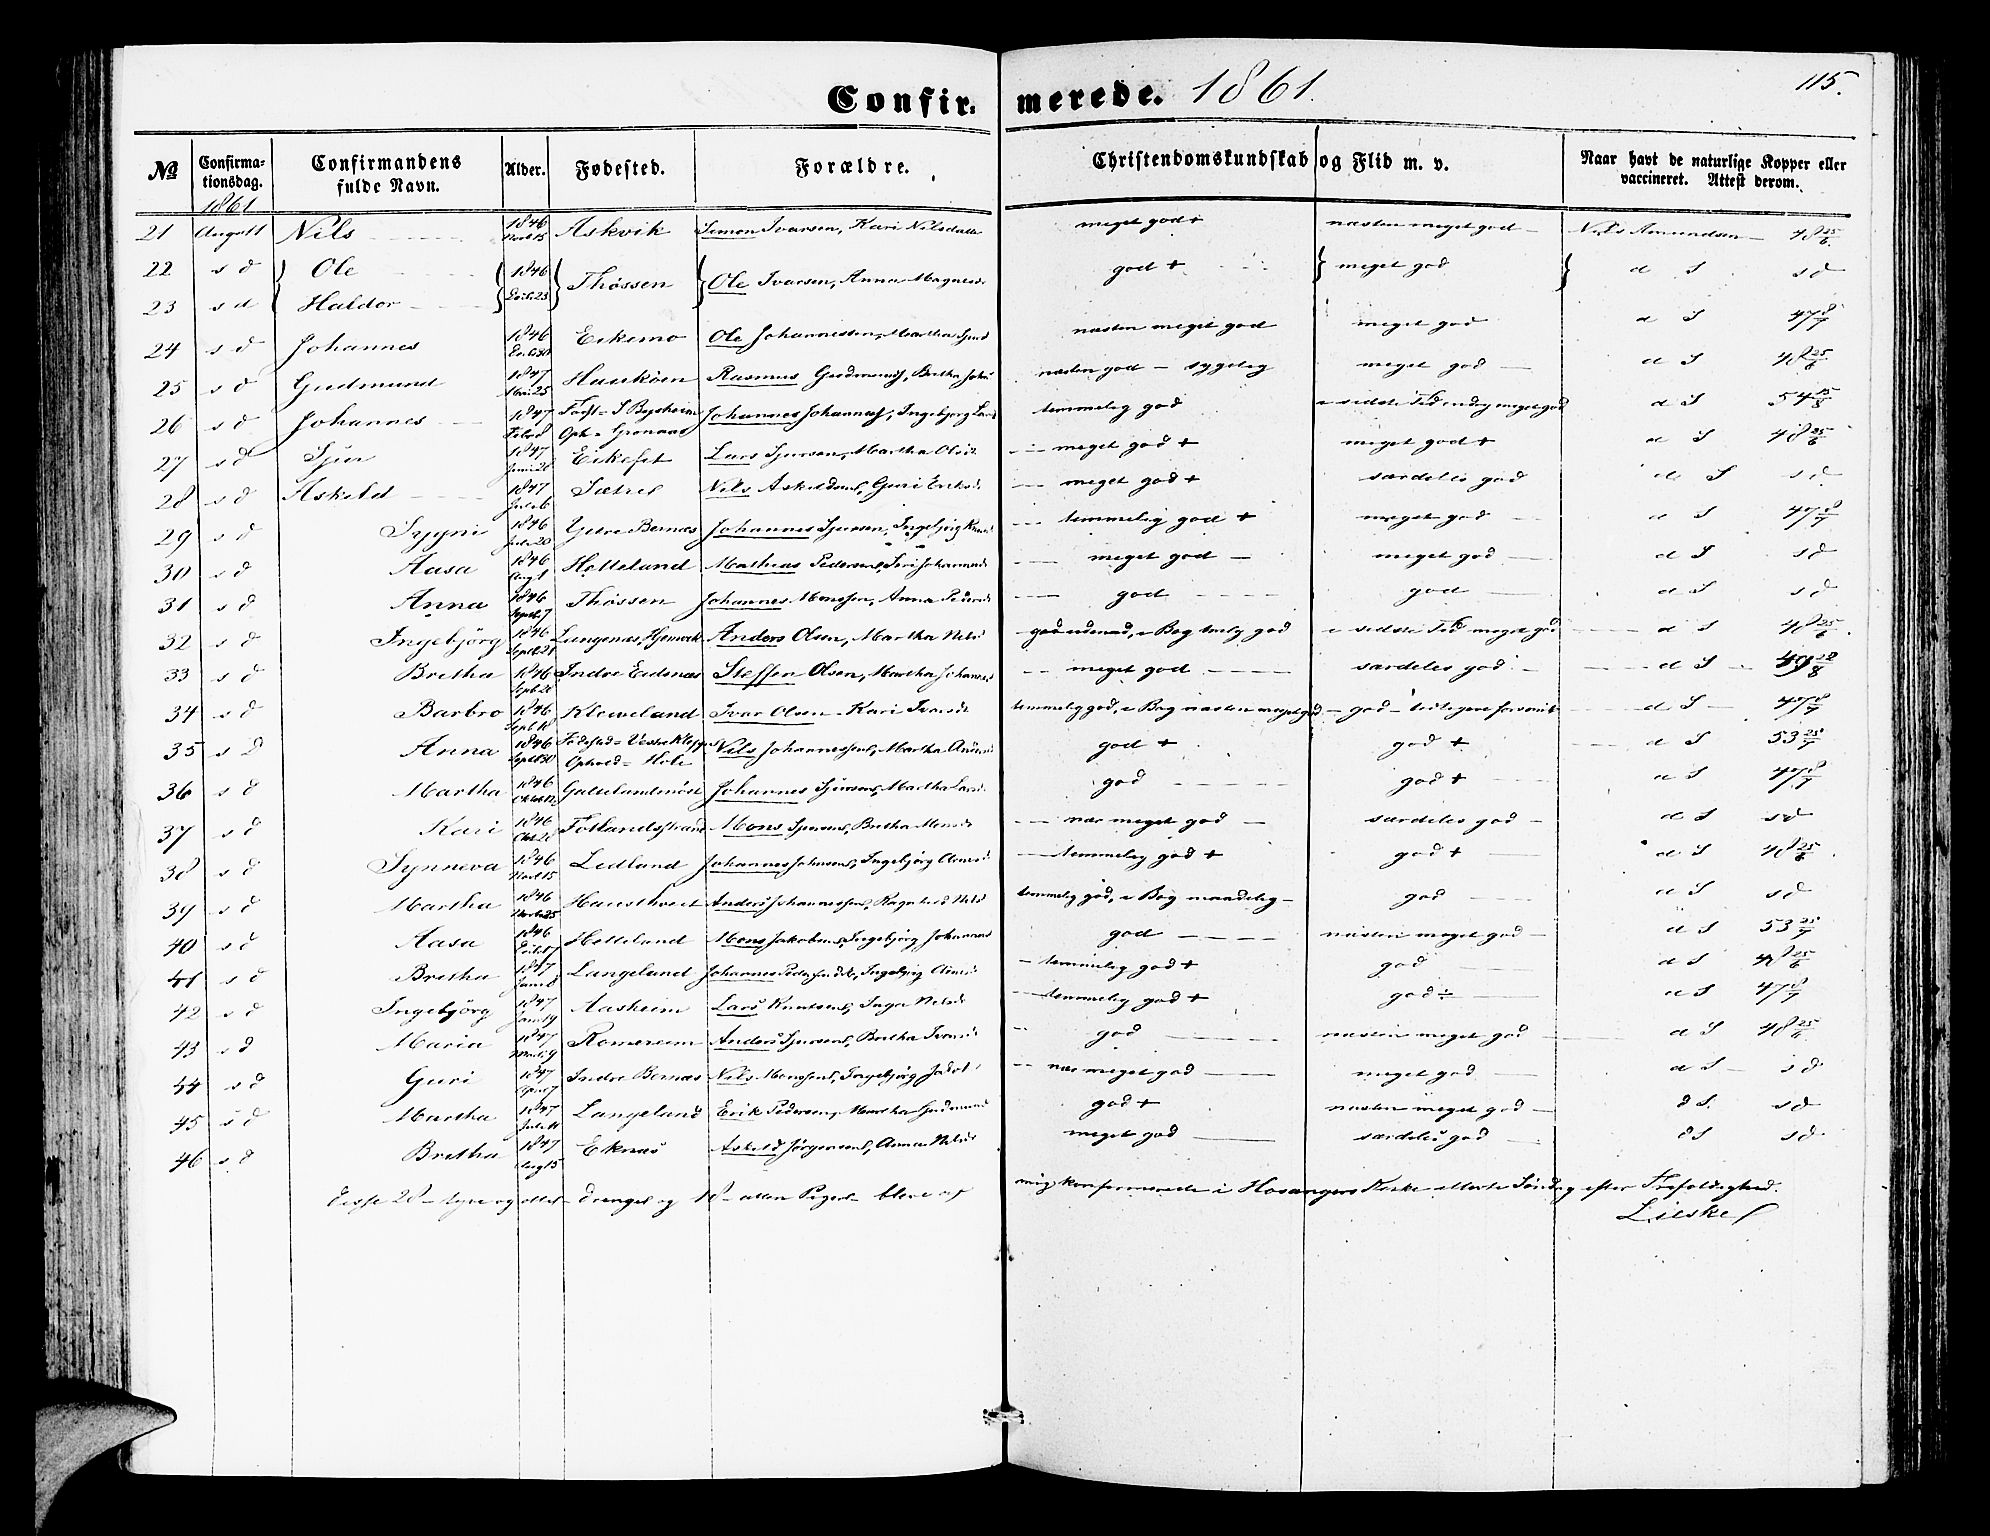 Confirmerede. 1861. 115.
No Confirmationsdag. Confirmandens fulde Navn. Alder. Fødested. Forældre. Christendomskundskab og Flid m. v. Naar havt de naturlige Kopper eller vaccineret. Attest derom.
1861
21 August 11 Nils 1846 Novb 15 Askvik Simon Ivarsen, Kari Nilsdatter meget god + næsten meget god Nils Amundsen 48 25/6
22 s d Ole 1846 god + meget god d S s d
23 s d Haldor Decb. 23 Thössen Ole Ivarsen, Anna Magnesd
24 s d Johannes 1846 Eikemo Ole Johannessen, Martha næsten meget god meget god d S 47 8/7
25 s d Gudmund 1847 Rasmus Gudmunds, Bretha næsten god - sygelig meget god d S 48 25/6
26 s d Johannes 1847 Febr 8 Født = Oph = Johannes Johannes, Ingebjørg Lars temmelig god meget god d S 54
27 s d Sjur 1847 Juni 20 Eikeset Lars Sjursen, Martha Olsd meget god + meget god + d S 48 25/6
28 s d Askeld 1847 Juli 6 Sætres Nils Askeldsens, Guri Eriksd meget god + særdeles god d S s d
29 s d Sygni 1846 Juli 20 Ytre Bernæs Johannes Sjursen, Ingebjörg temmelig god + meget god d S 47 8/7
30 s d Aasa 1846 Aug 1 Hotteland Mathias Pedersens, meget god meget god d S s d
31 s d Anna 1846 Septb. 7 Thössen Johannes Monssen, Anna Pedersd god god d S s d
32 s d Ingebjörg 1846 Anders Olsen, Martha Nilsd god udenad, i Bog god i sidste Tid meget god d S 48 25/6
33 s d Bretha 1846 Indre Steffen Olsen, Martha Johannesd meget god særdeles god d S 49
34 s d Barbro 1846 Kleiveland Ivar Olsen Kari Ivarsd temmelig god, i Bog næsten meget god god - d S 47 8/7
35 s d Anna 1846 Septb 30 Fødested = Ophold = Nils Johannessens, Martha god + god + d S 53 25/7
36 s d Martha 1846 Johannes Sjursens, Martha Larsd god god + d S 47 8/7
37 s d Kari 1846 Fotlandsstrand Mons Sjursens, Bretha Monsd nær meget god særdeles god d S s d
38 s d Synneva 1846 Novb 15 Ledland Johannes Johnsens, Ingebjörg temmelig god + god + d S 48 25/6
39 s d Martha 1846 Novb. 25 Anders Johannessens, Ragnhild Nilsd temmelig god, i Bog maadelig god d S s d
40 s d Aasa 1846 Decb. 17 Hotteland Mons Jakobsens, Ingebjörg Johannesd god næsten meget god d S 53 25/7
41 s d Bretha 1847 Langeland Johannes Ingebjörg temmelig god + god d S 48 25/6
42 s d Ingebjörg 1847 Jan 19 Aasheim Lars Knutsens, Inga Nilsd temmelig god + god ÷ d S 47 8/7
43 s d Maria 1847 Romereim Anders Sjursens, Bretha Ivarsd god næsten meget god d S 48 25/6
44 s d Guri 1847 April 7 Indre Bernæs Nils Monssens, Ingebjörg nær meget god meget god d S s d
45 s d Martha 1847 Juli 11 Langeland Erik Pedersens, Martha god + næsten meget god d S. s d
46 s d Bretha 1847 Aug 15 Eknæs Askeld Jörgensens, Anna Nilsd meget god særdeles god d S s d
Disse 28 - tyve og otte - drenge og 18 - atten Piger - bleve af mig konfirmerede i Hosangers Kirke ellevte Söndag efter Trefoldighed.
Lilskel